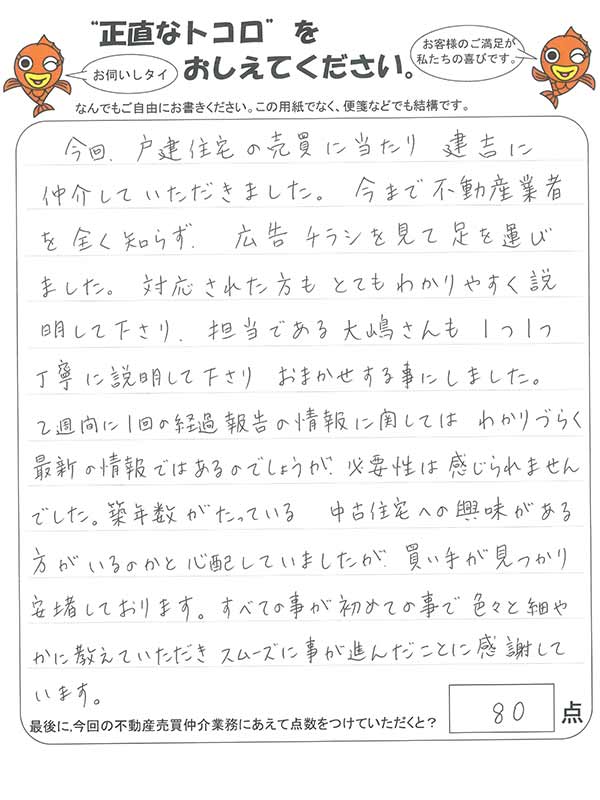 "正直なトコロ"を
おしえてください。
お伺いしタイ
お客様のご満足が
私たちの喜びです。
なんでもご自由にお書きください。この用紙でなく、便箋などでも結構です。
今回、戸建住宅の売買に当たり 建吉に
仲介していただきました。 今まで不動産業者
を全く知らず、 広告チラシを見て足を運び
ました。 対応された方も とてもわかりやすく説
明して下さり、担当である大嶋さんも 1つ1つ
丁寧に説明して下さり おまかせする事にしました。
2週間に1回の経過報告の情報に関しては わかりづらく
最新の情報ではあるのでしょうが、必要性は感じられません
でした。築年数がたっている 中古住宅への興味がある
方がいるのかと心配していましたが、買い手が見つかり
安堵しております。すべての事が初めての事で色々と細や
かに教えていただき スムーズに事が進んだことに感謝して
います。
最後に、今回の不動産売買仲介業務にあえて点数をつけていただくと? 80 点